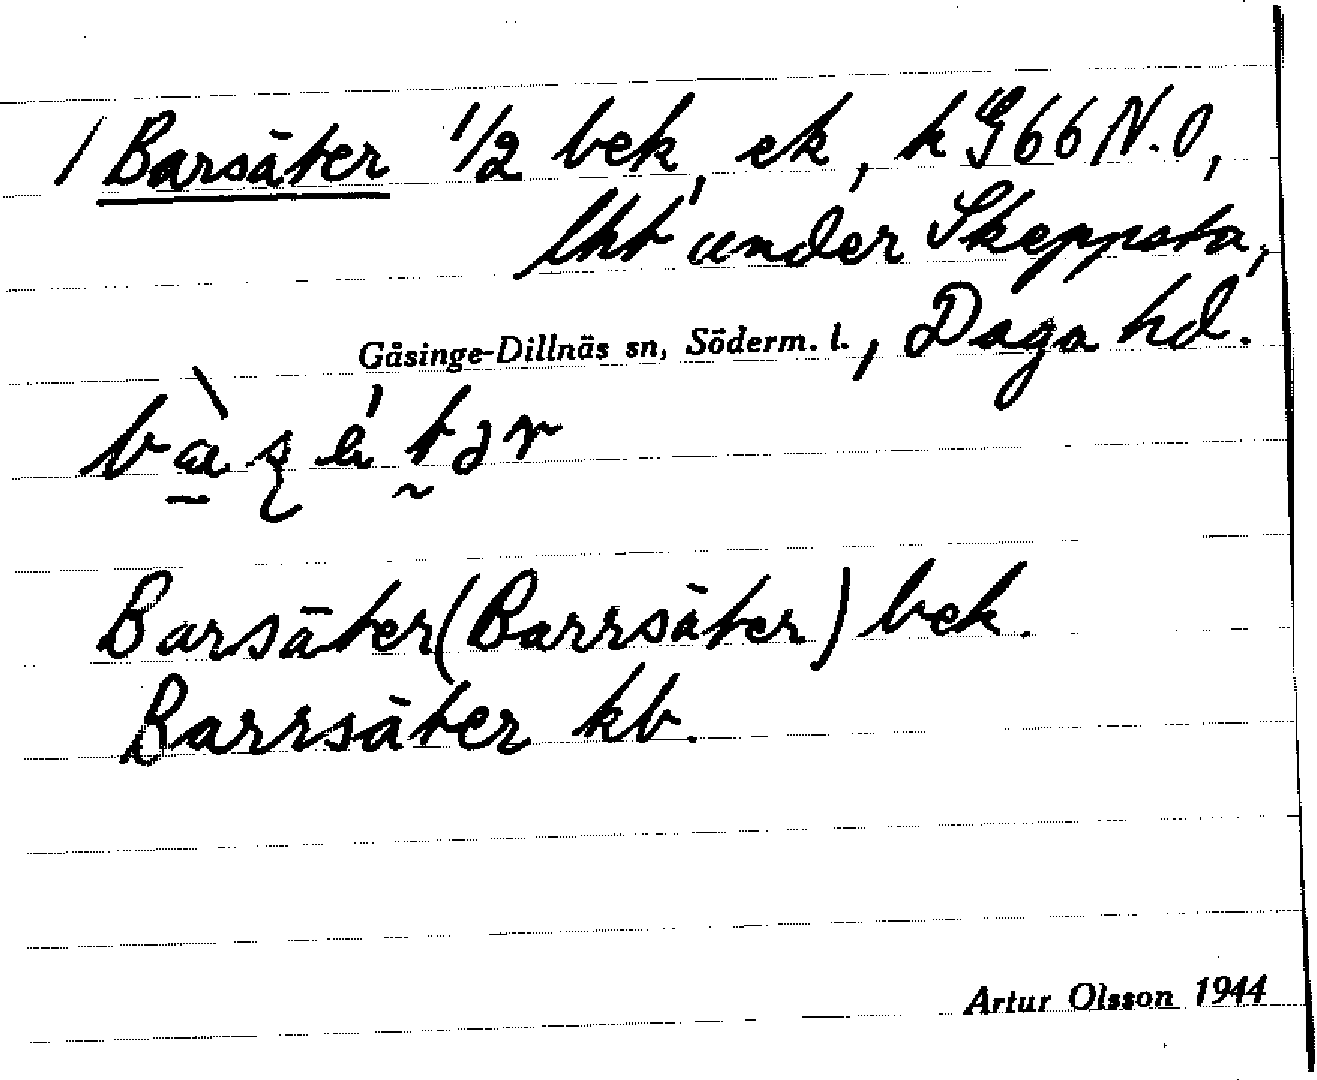 / Barsäter 1/2 bek, ek, k G66 N.O,
lht under Skeppsta,
Gåsinge-Dillnäs sn, Söderm. l., Daga hd.
Barsäter (Barrsäter) bek.
Barrsäter kb.
Artur Olsson 1944